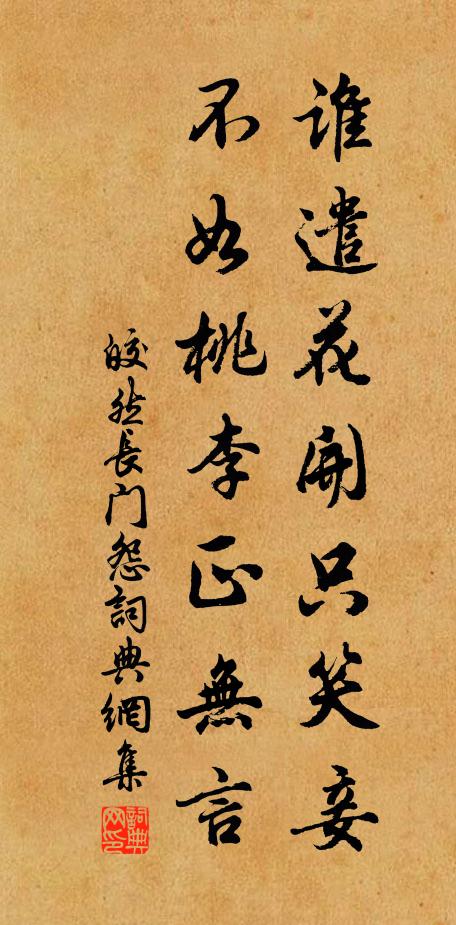 誰遣花開只笑妾
不如桃李正無言
皎然長门怨詞典網集
詞典网印